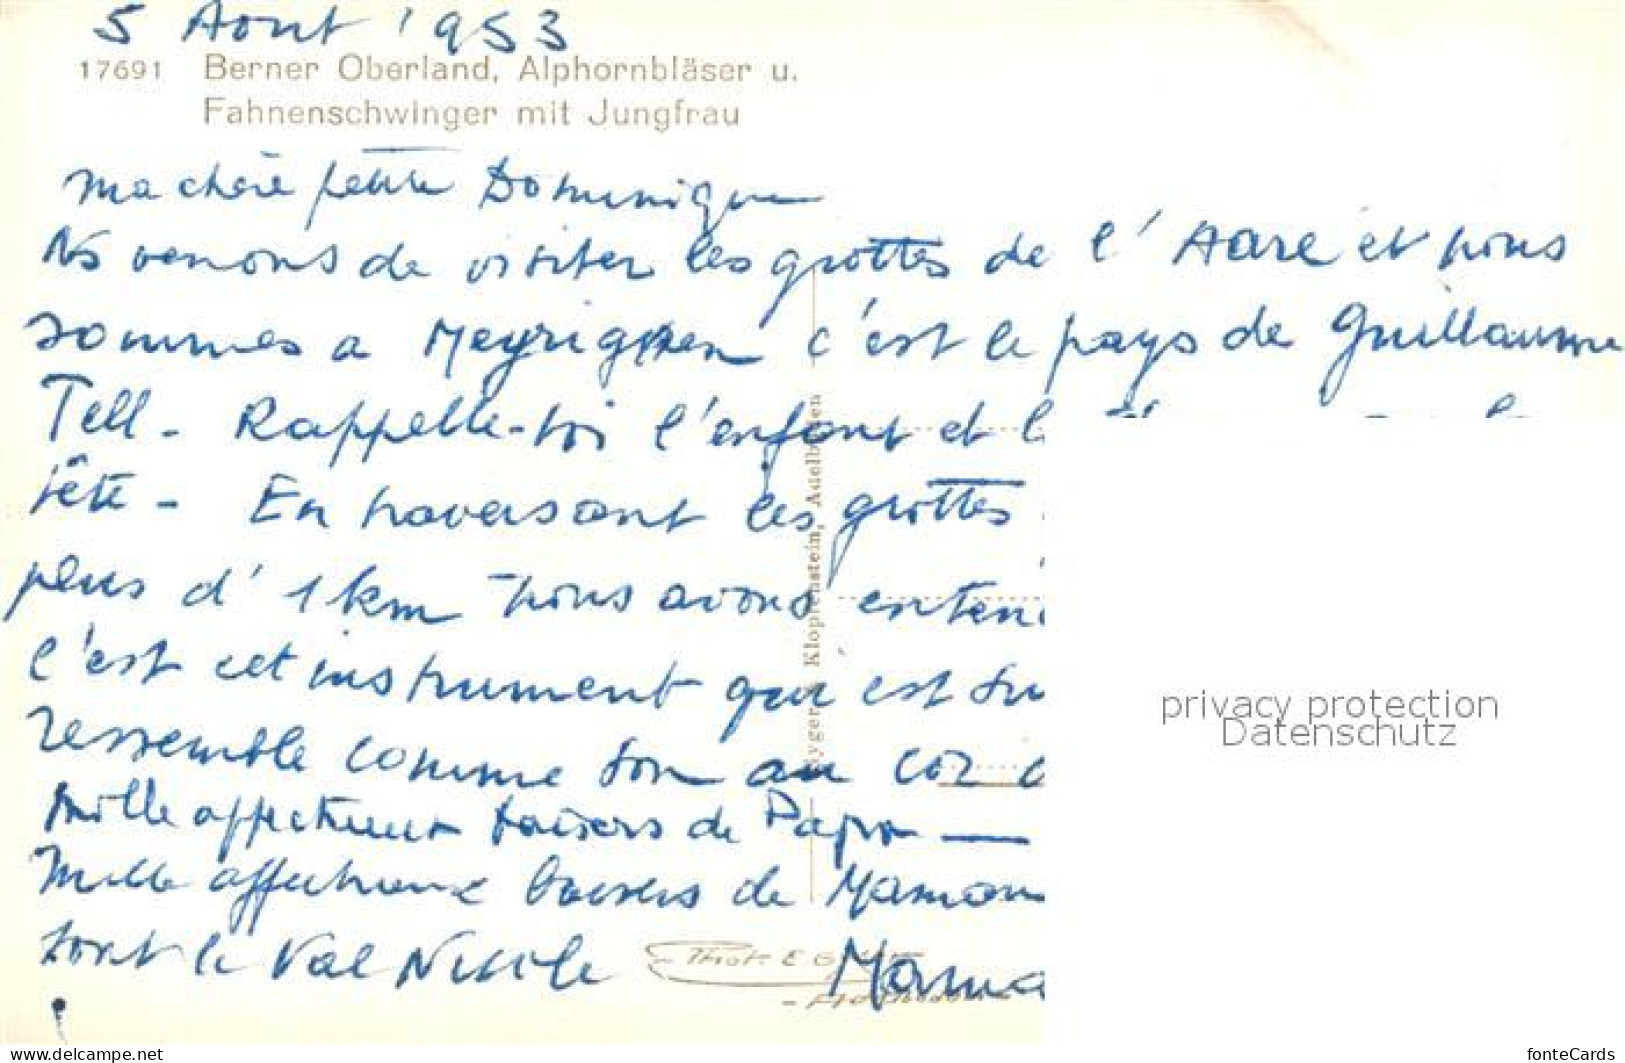 5 Aout 1953
17691 Berner Oberland, Alphornbläser u.
Fahnenschwinger mit Jungfrau
Ma chère petite Dominique
Ns venons de visiter les grottes de l'Aare et nous
sommes a Meyrigen c'est le pays de Guillaume
Tell - Rappelle-toi l'enfant et
tête - En traversant les grottes
plus d'1 km nous avons
c'est cet instrument qui est
ressemble comme son au cor
Mille affectueux baisers de Papa
Mille affectueux baisers de Maman
tout le Val
Klopfenstein, Adelboden
Phot. E. Gyger
privacy protection
Datenschutz
www.delcampe.net
fonteCards